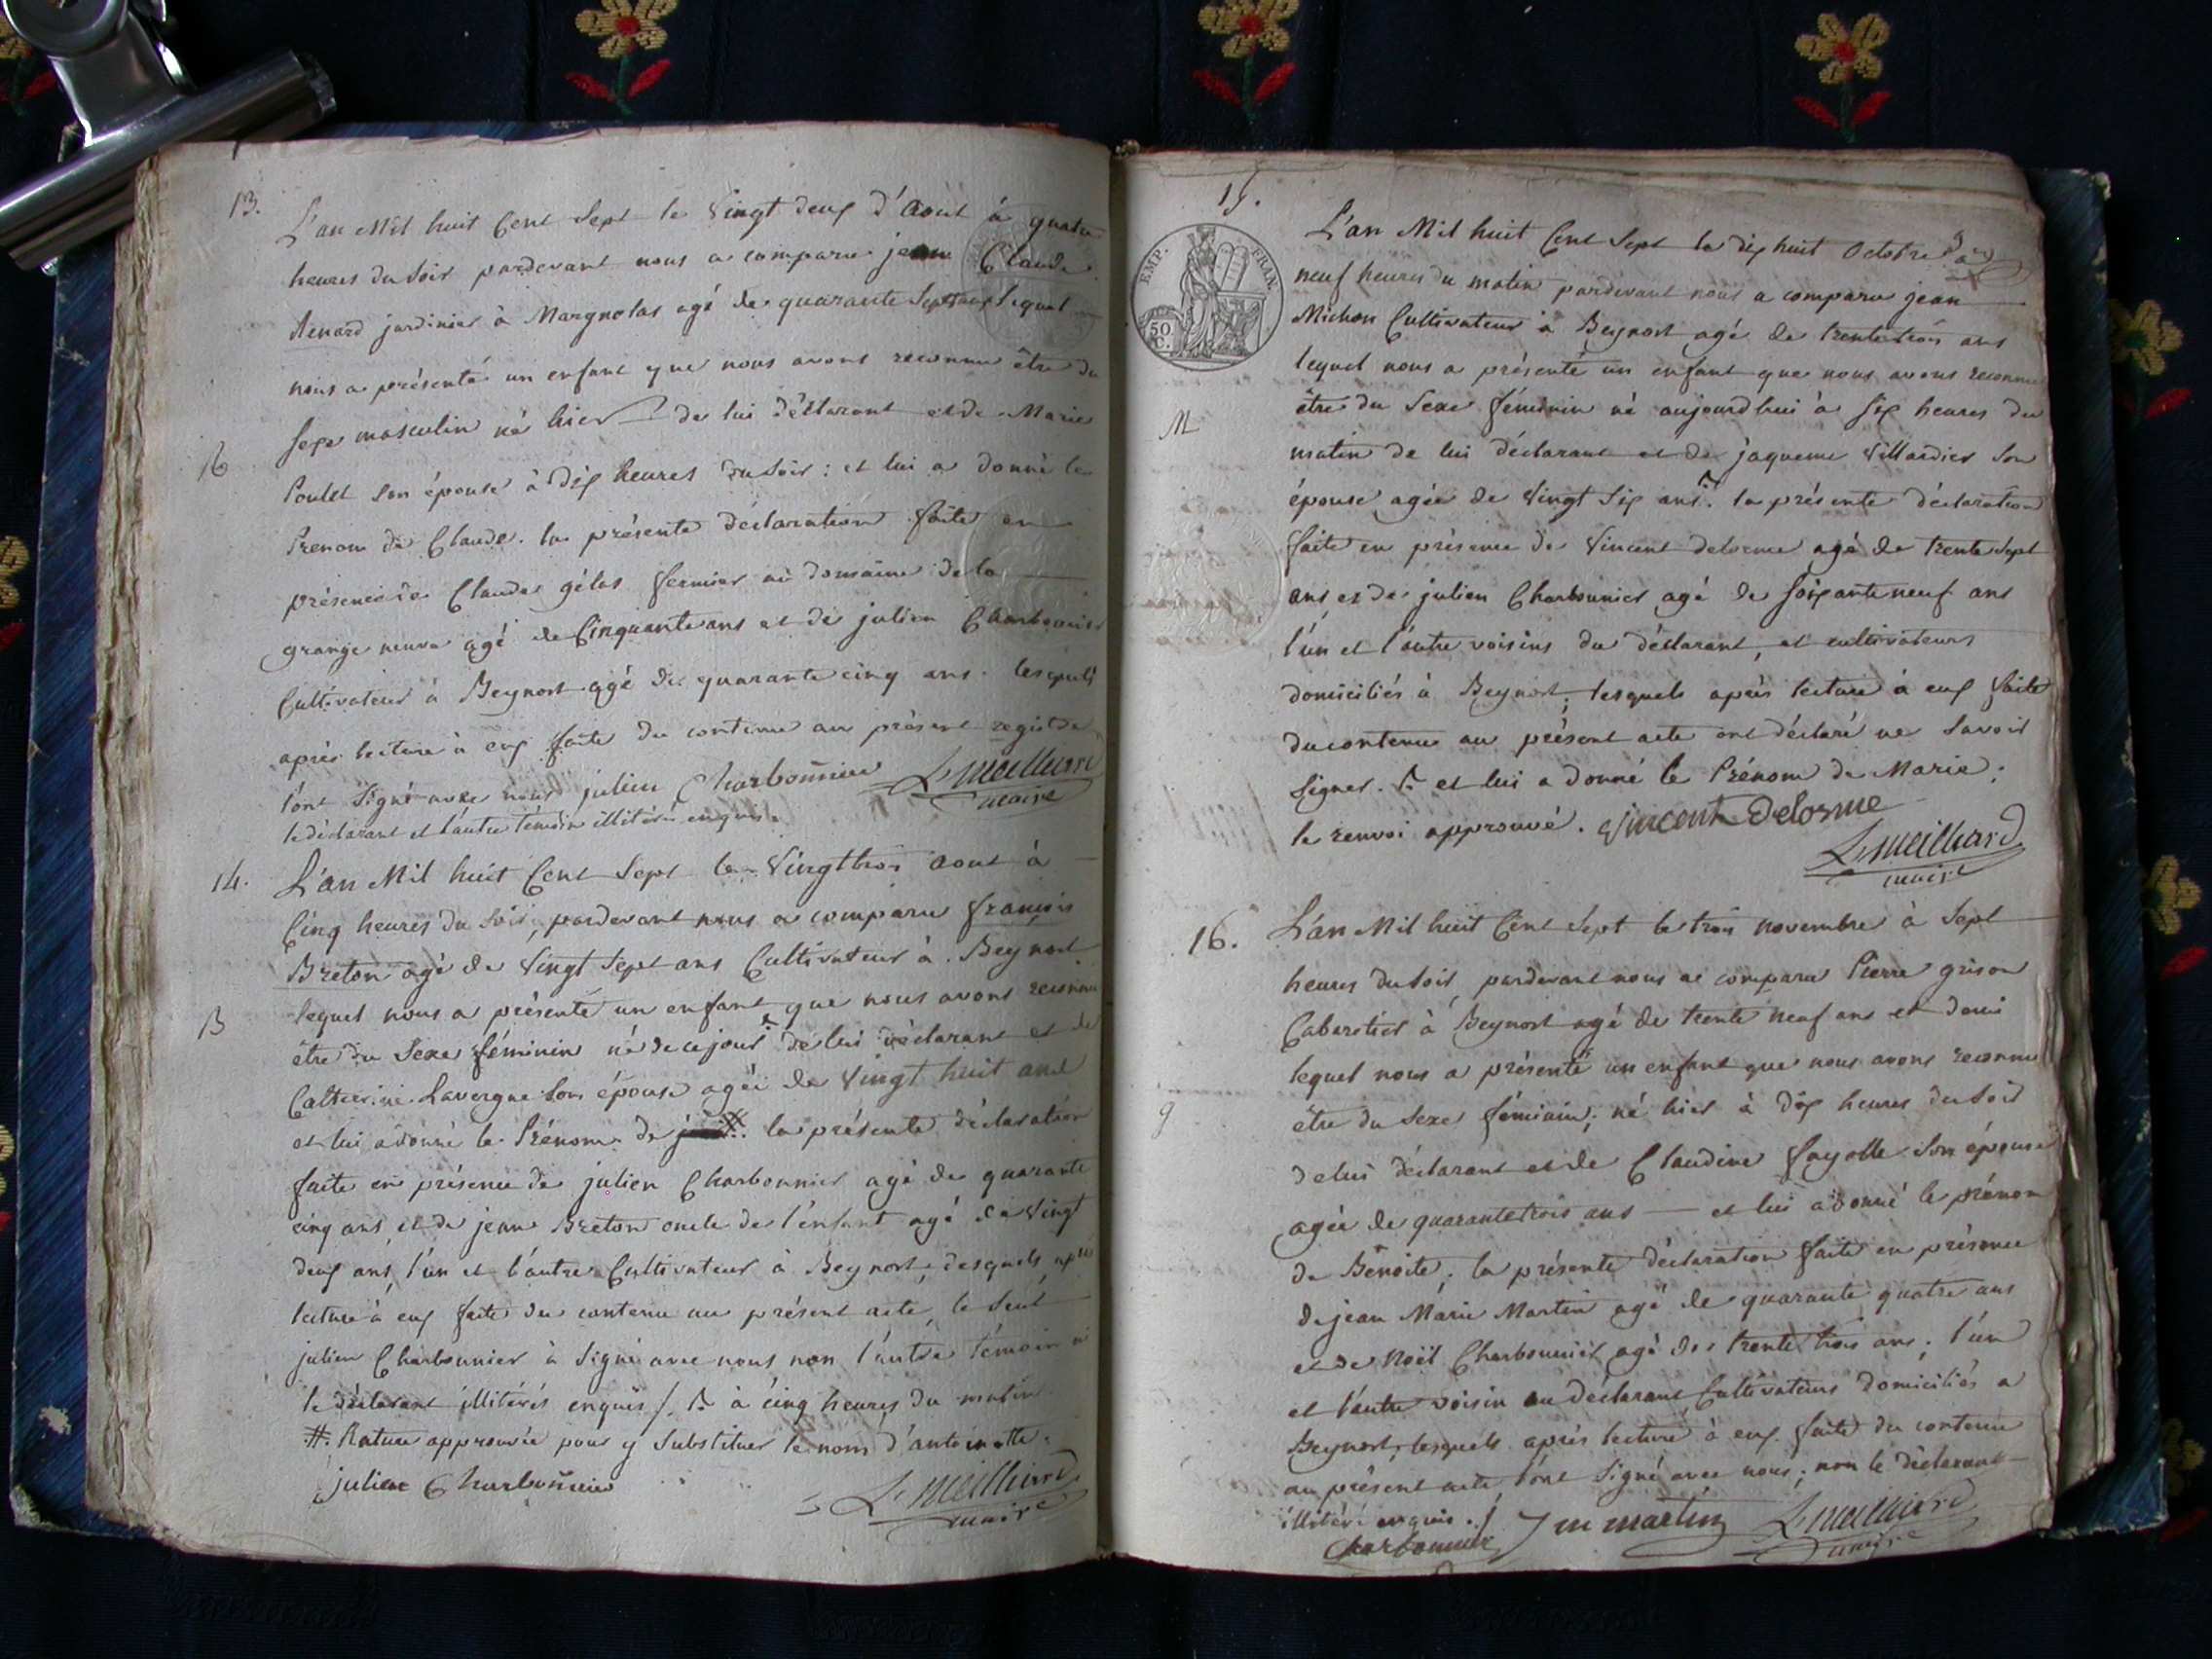 13.
L'an Mil huit Cent Sept le Vingt deux d'Aout à quatre
heures du Soir pardevant nous a comparu jean Claude
Renard jardinier à Margnolas agé de quarante Sept ans lequel
nous a présenté un enfant que nous avons reconnu être du
R
Sexe masculin né hier de lui déclarant et de Marie
Poulet Son épouse à dix heures du Soir : et lui a donné le
Prenom de Claude. la présente déclaration faite en
présence de Claude gélas fermier au domaine de la
grange neuve agé de Cinquante ans et de julien Charbonnier
Cultivateur à Beynost agé de quarante cinq ans. lesquels
après lecture à eux faite du contenu au présent registre
l'ont Signé avec nous julien Charbonnier L. Meilliard
maire
le déclarant et l'autre témoin illitérés enquis.
14.
L'an Mil huit Cent Sept le Vingt trois aout à
Cinq heures du Soir, pardevant nous a comparu françois
Breton agé de Vingt Sept ans Cultivateur à Beynost
B
lequel nous a présenté un enfant que nous avons reconnu
être du Sexe féminin né de ce jour de lui déclarant et de
Catherine Lavergne Son épouse agée de Vingt huit ans
et lui a donné le Prénom de #. la présente déclaration
faite en présence de julien Charbonnier agé de quarante
cinq ans, et de jean Breton oncle de l'enfant agé de Vingt
deux ans, l'un et l'autre Cultivateur à Beynost, desquels après
lecture à eux faite du contenu au présent acte, le Seul
julien Charbonnier à Signé avec nous non l'autre témoin ni
le déclarant illitérés enquis /. à cinq heures du matin
#. Rature approuvée pour y Substituer le nom d'antoinette.
julien Charbonnier
L. Meilliard
maire
15.
EMP. FRAN.
50 C.
L'an Mil huit Cent Sept le dix huit Octobre à
neuf heures du matin pardevant nous a comparu jean
Michon Cultivateur à Beynost agé de trente trois ans
lequel nous a présenté un enfant que nous avons reconnu
M
être du Sexe féminin né aujourd'hui à Six heures du
matin de lui déclarant et de jaqueme Villardier Son
épouse agée de Vingt Six ans. la présente déclaration
faite en présence de Vincent delorme agé de trente Sept
ans et de julien Charbonnier agé de Soixante neuf ans
l'un et l'autre voisins du déclarant, et cultivateurs
domiciliés à Beynost, lesquels après lecture à eux faite
du contenu au présent acte ont déclaré ne Savoir
Signer. et lui a donné le Prénom de Marie.
le renvoi approuvé. Vincent Delorme
L. Meilliard
maire
16.
L'an Mil huit Cent Sept le trois novembre à Sept
heures du Soir, pardevant nous a comparu Pierre grison
Cabaretier à Beynost agé de trente neuf ans et demi
lequel nous a présenté un enfant que nous avons reconnu
g
être du Sexe féminin, né hier à dix heures du Soir
de lui déclarant et de Claudine fayolle Son épouse
agée de quarante trois ans — et lui a donné le prénom
de Benoite. la présente déclaration faite en présence
de jean Marie Martin agé de quarante quatre ans
et de Noël Charbonnier agé de trente trois ans. l'un
et l'autre voisin au déclarant, Cultivateurs domiciliés a
Beynost, lesquels après lecture à eux faite du contenu
au présent acte, l'ont Signé avec nous, non le déclarant
illitéré enquis ./ J m martin L. Meilliard
Charbonnier maire